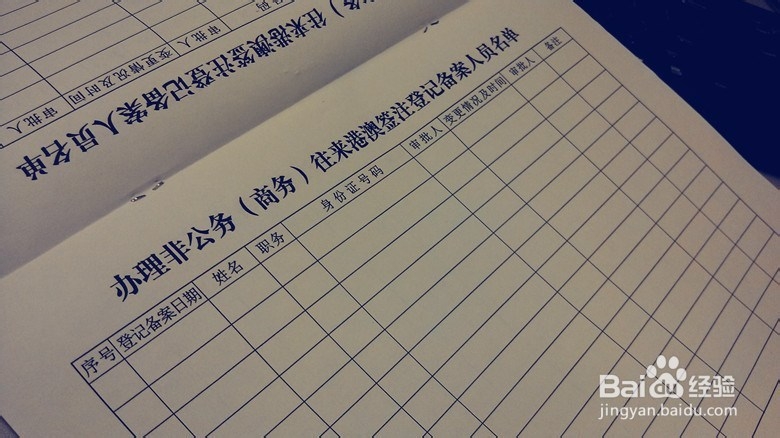 号码 审批人 变更情况及时间 审批人
务）往来港澳签注登记备案人员名单
办理非公务（商务）往来港澳签注登记备案人员名单
序号 登记备案日期 姓名 职务 身份证号码 审批人 变更情况及时间 审批人 备注
Baidu 经验
jingyan.baidu.com